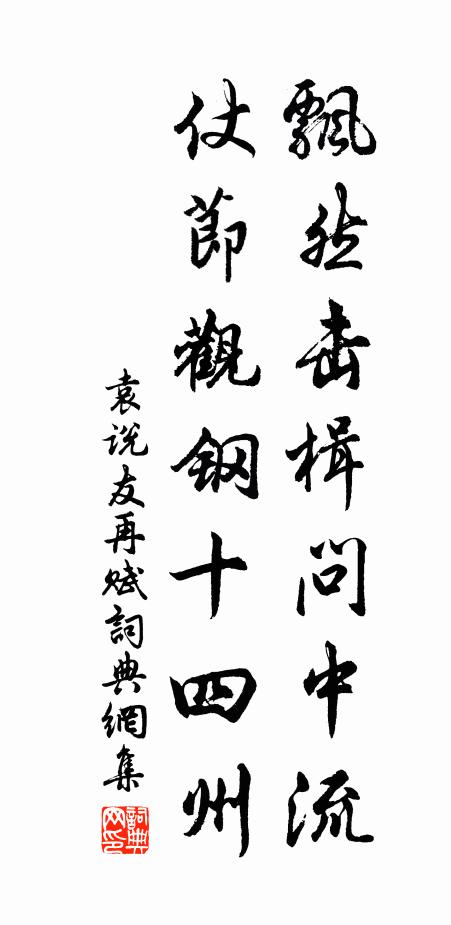 飄然击楫問中流
仗節觀鋼十四州
袁说友再赋詞典網集
詞典網印